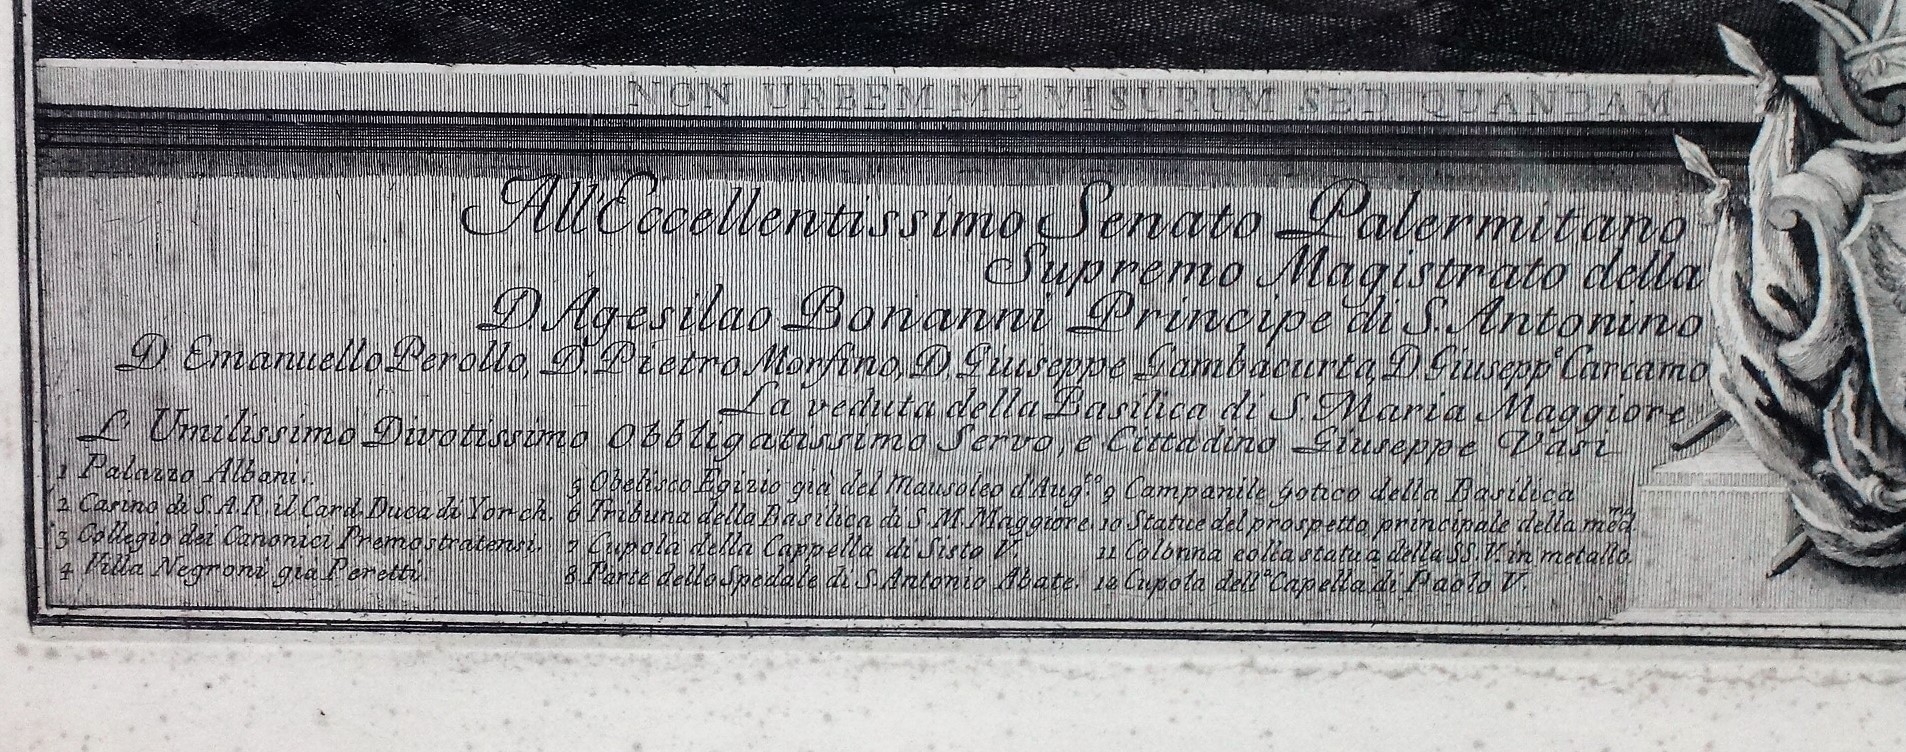 NON URBEM ME VISURUM SED QUANDAM
All'Eccellentissimo Senato Palermitano
Supremo Magistrato della
D. Agesilao Bonanni Principe di S. Antonino
D. Emanuello Perollo, D. Pietro Morfino, D. Giuseppe Gambacurta, D. Giusepp.e Carcamo
La veduta della Basilica di S. Maria Maggiore
L' Umilissimo Divotissimo Obbligatissimo Servo, e Cittadino Giuseppe Vasi
1 Palazzo Albani.
2 Casino di S.A.R. il Card. Duca di Yorch.
3 Collegio dei Canonici Premostratensi.
4 Villa Negroni già Peretti.
5 Obelisco Egizio già del Mausoleo d'Aug.to
6 Tribuna della Basilica di S. M. Maggiore.
7 Cupola della Cappella di Sisto V.
8 Parte dello Spedale di S. Antonio Abate.
9 Campanile gotico della Basilica
10 Statue del prospetto principale della med.ma
11 Colonna colla statua della SS. V. in metallo.
12 Cupola dell.a Capella di Paolo V.